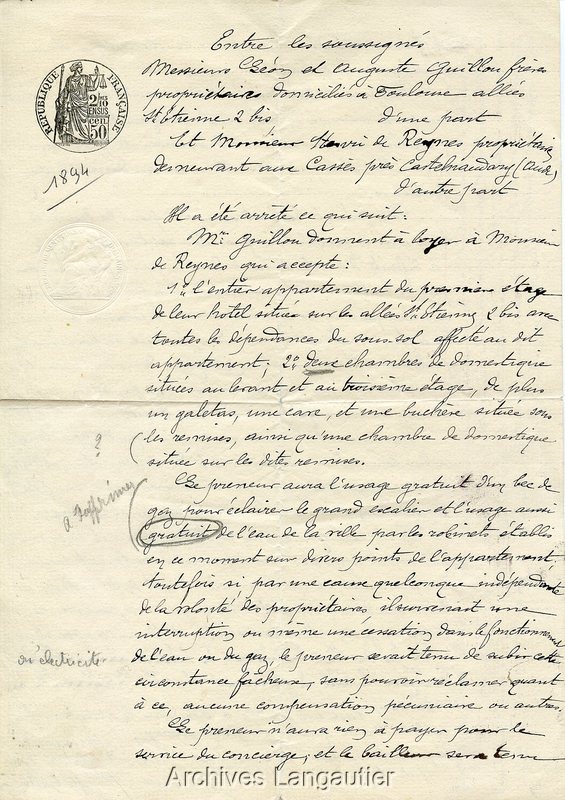 Entre les soussignés
Messieurs Léon et Auguste Guillou frères
propriétaires domiciliés à Toulouse allées
St Etienne 2 bis d'une part
Et Monsieur Henri de Reynes propriétaire
demeurant aux Cassès près Castelnaudary (Aude)
d'autre part
Il a été arrêté ce qui suit :
Mrs Guillou donnent à loyer à Monsieur
de Reynes qui accepte :
1o l'entier appartement du premier étage
de leur hôtel située sur les allées St Etienne 2 bis avec
toutes les dépendances du sous-sol affecté au dit
appartement ; 2o deux chambres de domestique
situées au levant et au troisième étage, de plus
un galetas, une cave, et une buchère située sous
les remises, ainsi qu'une chambre de domestique
située sur les dites remises.
Le preneur aura l'usage gratuit d'un bec de
gaz pour éclairer le grand escalier et l'usage aussi
gratuit de l'eau de la ville par les robinets établis
en ce moment sur divers points de l'appartement.
toutefois si par une cause quelconque indépendante
de la volonté des propriétaires il survenait une
interruption ou même une cessation dans le fonctionnement
de l'eau ou du gaz, le preneur serait tenu de subir cette
circonstance fâcheuse, sans pouvoir réclamer quant
à ce, aucune compensation pécuniaire ou autres.
Le preneur n'aura rien à payer pour le
service du concierge, et le bailleur sera tenu
REPUBLIQUE FRANÇAISE
2/10
EN SUS
50 cen
1894
?
a supprimer
ou électricité
Archives Langautier